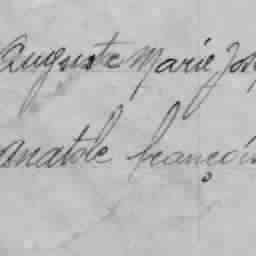 Auguste Marie Jos
Anatole françois